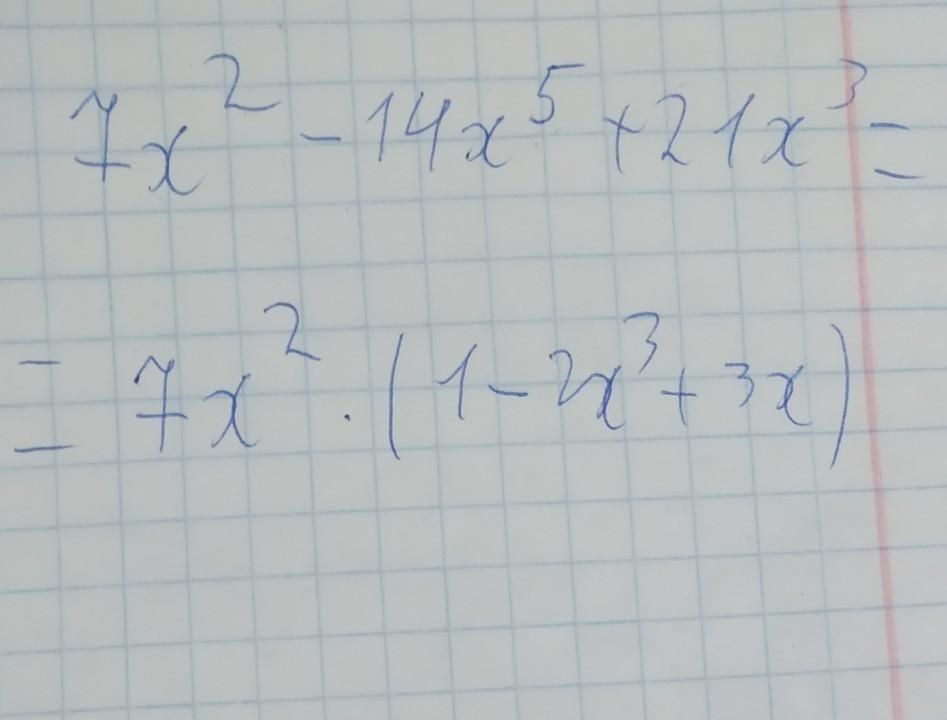 7x² - 14x⁵ + 21x³ =
= 7x² · (1 - 2x³ + 3x)